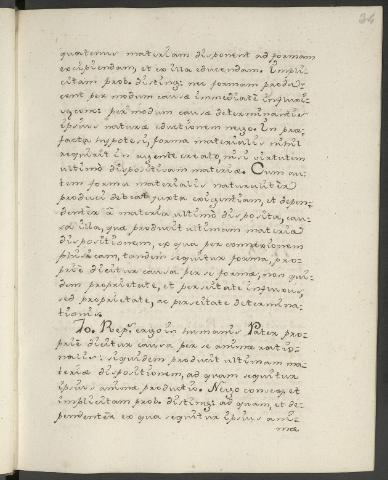 34
quatenus materiam disponent ad formam
excipiendam, et ex illa educendam. Impli-
citam prob. disting: nec formam produ-
cent per modum causæ immediate influxi-
væ, conc: per modum causæ determinantis
ipsius naturæ eductionem nego. In præ-
facta hypotesi, forma materialis nihil
requirit in agente creato, nisi virtutem
ultimo dispositivam materiæ. Cum au-
tem forma materialis naturaliter
produci debeat juxta exigentiam, et depen-
denter a materia ultimo disposita, cau-
sa illa, quæ producit ultimam materiæ
dispositionem, ex qua per connexionem
phisicam, tandem sequitur forma, pro-
prie dicitur causa per se formæ, non qui-
dem proprietate, et perseitate influxus,
sed proprietate, ac perseitate determina-
tionis.
10. Repl. ergo in humanis Pater pro-
prie dicitur causa per se animæ ratio-
nalis: siquidem producit ultimam ma-
teriæ dispositionem, ad quam sequitur
ipsius animæ productio. Nego conseq. et
implicitam prob. disting: ad quam, et de-
pendenter ex qua sequitur ipsius ani-
mæ